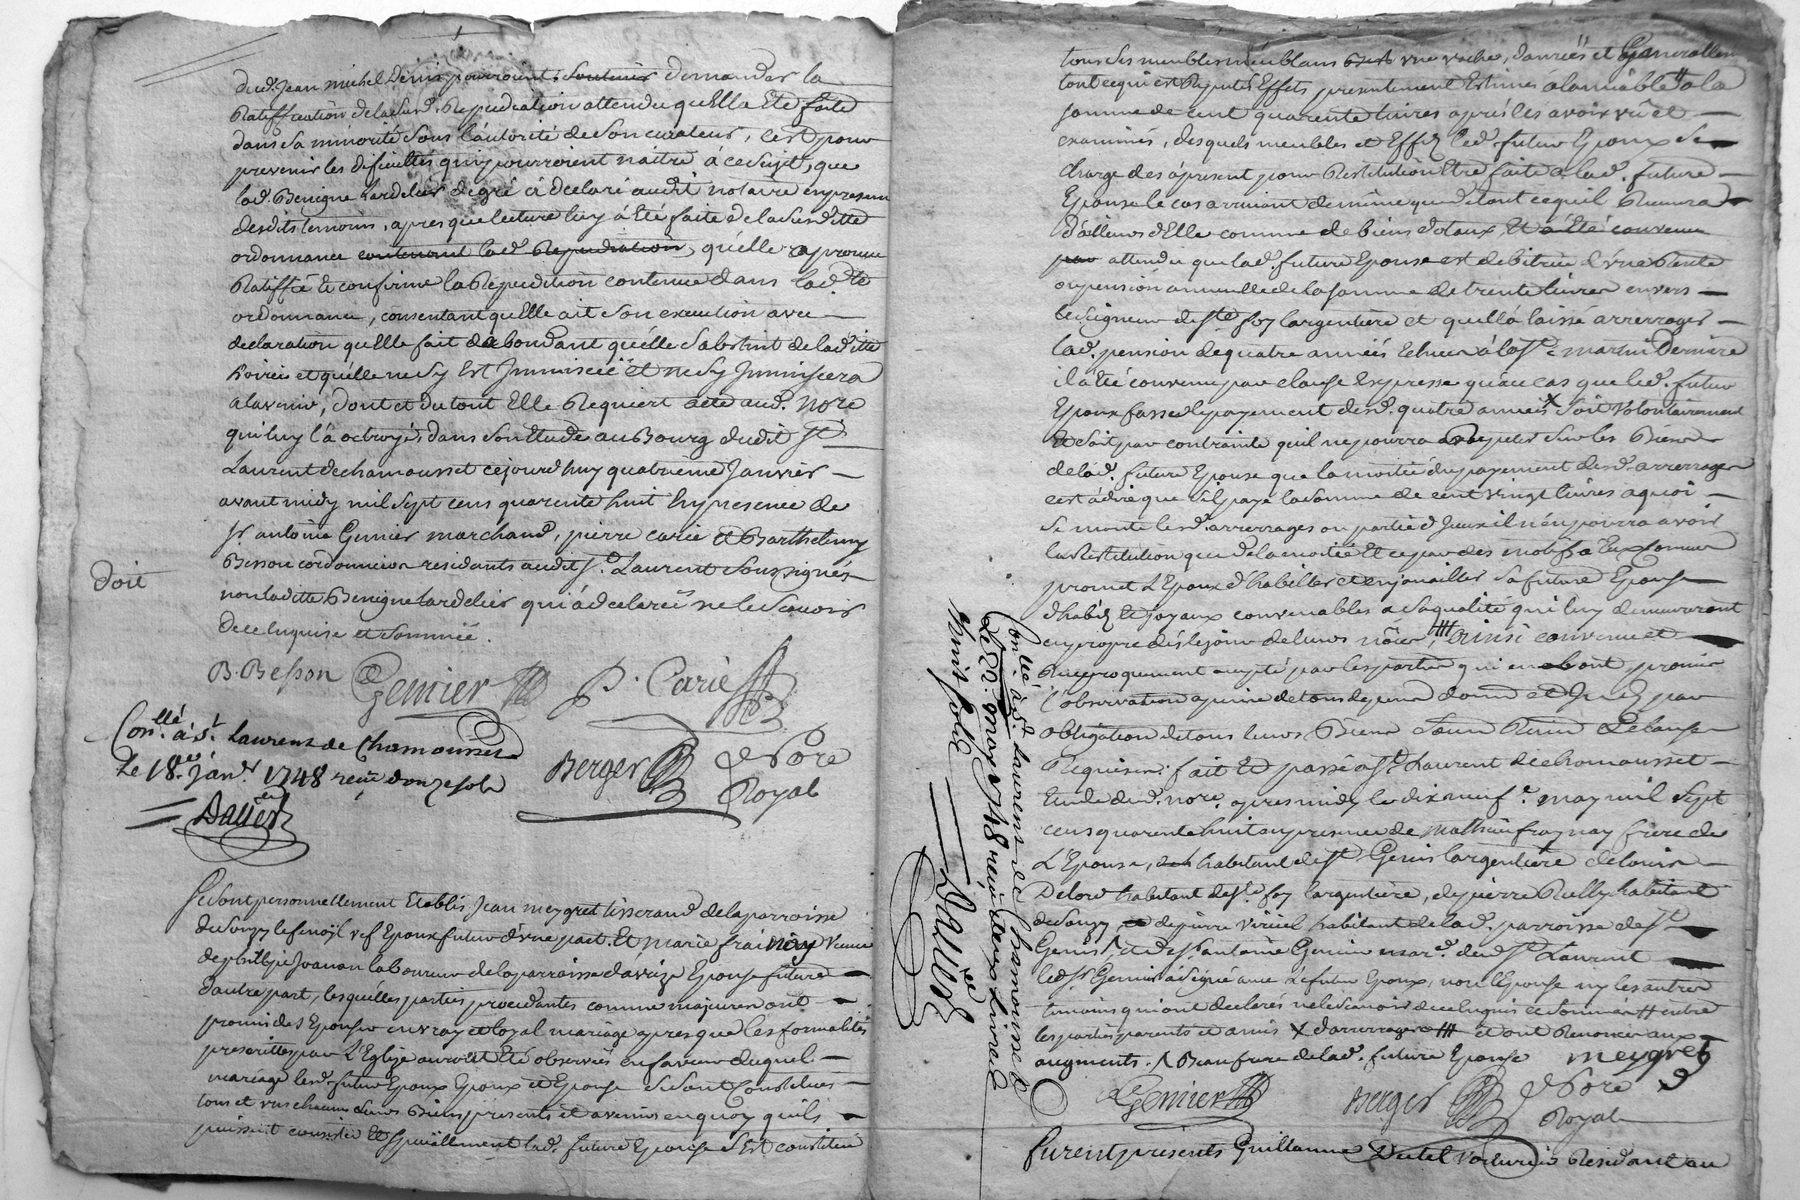 dud. Jean michel Denis pourroient soutenir demander la
Ratiffication de la susd. Repudiation attendu qu'Ella Eté faite
dans sa minorité sous l'autorité de son curateur, c'est pour
prevenir les dificultés qui pourroient naitre à ce sujet, que
lad. Benigne Lardelier de gré à declaré audit notaire en presence
desdits temoins, apres que lecture luy à Eté faite de la susditte
ordonnance contenant lad. Repudiation, qu'elle approuve
Ratiffie Et confirme la Repudition contenue dans lad. te
ordonnance, consentant qu'Elle ait son execution avec
declaration qu'Elle fait d'abondant qu'elle s'abstint de laditte
hoirie et qu'elle ne s'y Est Immiscée et ne s'y Immiscera
a l'avenir, dont et du tout Elle Requiert acte aud. nore
qui luy l'à octroyé, dans son Etude au Bourg dudit St.
Laurent de chamousset ce jourd'huy quatrième Janvier
avant midy mil sept cens quarente huit En presence de
Sr. antoine Genier marchand, pierre carié Et Barthelemy
Besson cordonnier residants audit St. Laurent soussignés
non laditte Benigne Lardelier qui à declaré ne le scavoir
de ce Enquise et sommée.
doit
B. Besson Genier P. Carié
Conllé. à St. Laurent de Chamousset
le 18e. janvr. 1748 reçu douze sols
Dalier
Berger Nore
Royal
Se sont personnellement Etablis Jean meygret tisserand de la parroisse
de Souzy l'argentière vef Epoux futur d'une part. Et marie frainay veuve
de philipe Joanon laboureur de la parroisse d'aveize Epouse future
d'autre part, lesquelles parties procedantes comme majeures ont
promis de s'Epouser en vray et loyal mariage apres que les formalités
prescrittes par L'Eglise auront Eté observées en faveur duquel
mariage lesd. futur Epoux et Epouse se sont Constitués
tous et un chacun Leurs Biens presents et avenir en quoy qu'ils
puissent consister Et specialement lad. future Epouse s'est constitué
tous ses meubles meublans une vache, danrées et Generallement
tout ce qui est Reputé Effets presentement Estimés à l'amiable à la
somme de cent quarente livres après les avoir vû et
examinés, desquels meubles et Effets led. futur Epoux se
charge des à present pour Restitution Etre faite à lad. future
Epouse le cas arrivant de même que de tout ce qu'il Recevra
d'ailleurs d'Elle comme de biens dotaux, Et a Eté convenu
par attendu que lad. future Epouse est debitrice d'une Rente
ou pension annuelle de la somme de trente livres envers
le Seigneur de Ste. foy l'argentière et qu'ella laissé arrerager
lad. pension de quatre années Echeues à la St. martin Derniere
il a Eté convenu par clause Expresse qu'au cas que led. futur
Epoux fasse le payement desd. quatre années X soit volontairement
Et soit par contrainte qu'il ne pourra Repeter sur les Biens
de lad. future Epouse que la moitié du payement desd. arrerages
c'est à dire que s'il paye la somme de cent vingt livres a quoi
se monte lesd. arrerages ou partie d'Iceux il n'en pourra avoir
la Restitution que de la moitié Et ce par des motifs
promet L'Epoux d'habiller et enjoualler sa future Epouse
d'habits Et Joyaux convenables a sa qualité qui luy demeureront
en propre dés le jour de leurs nôces, ainsi convenu et
Reciproquement accepté par les parties qui en ont promis
l'observation a peine de tous depens domages et Interets par
obligation de tous leurs Biens Soum. Renon. & clauses
Requises. fait Et passé a St. Laurent de chamousset
Etude dud. nore. apres midy le dix neufe. may mil sept
cens quarente huit en presence de mathieu fraynay frere de
L'Epouse, habitant de St. Genis l'argentière de Louis
Delorme habitant de Ste. foy l'argentière, de pierre Rully habitant
de Souzy de pierre viricel habitant de lad. parroisse de St.
Genis, et de Sr. antoine Genier mard. dud. St. Laurent
led. Sr. Genier à signé avec le futur Epoux, non l'Epouse ny les autres
temoins qui ont declarés ne le scavoir de ce Enquis & sommés # entre
les parties parents et amis X d'arrerages ### et ont Renoncer aux
augments. Λ Beaufrere de lad. future Epouse meygret
Genier Berger Nore
Royal
Conllé. à St. Laurent de Chamousset
Le 22. may 1748 reçu deux Livres
huit sols
Dalier
furent presents Guillaume Dutel voiturier Residant au